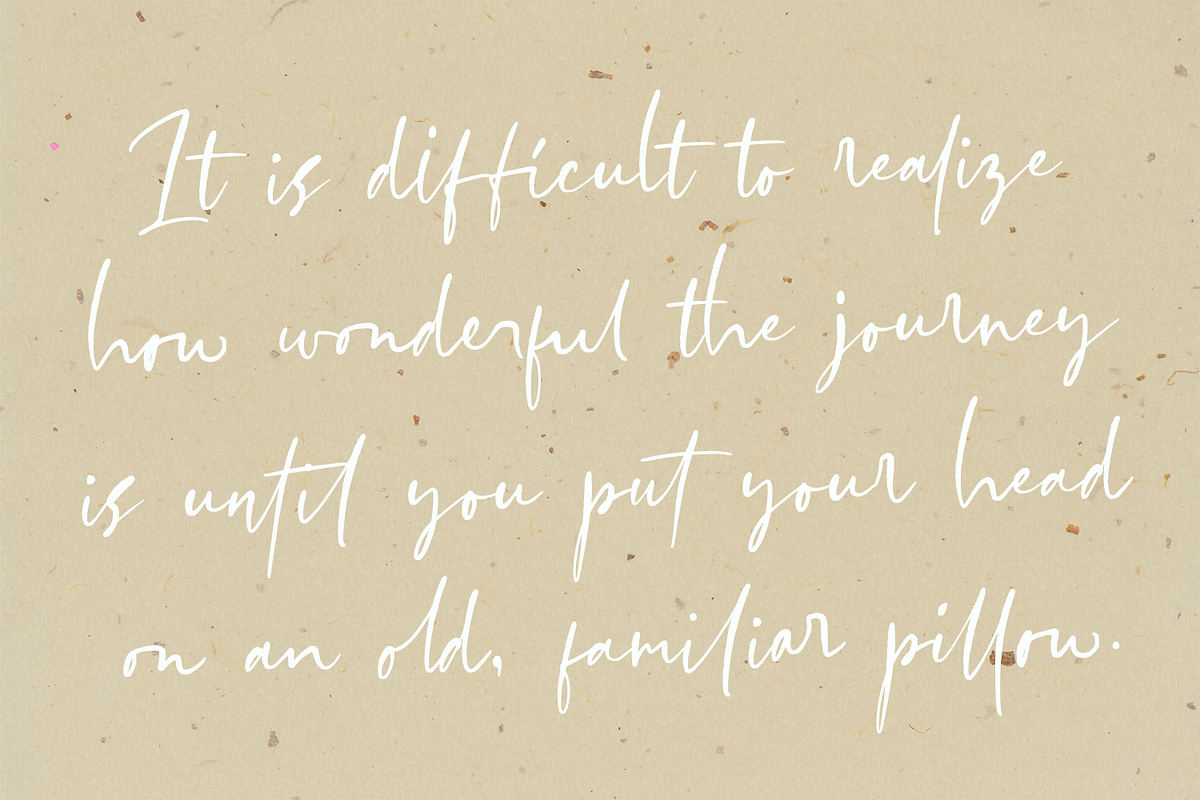 It is difficult to realize
how wonderful the journey
is until you put your head
on an old, familiar pillow.